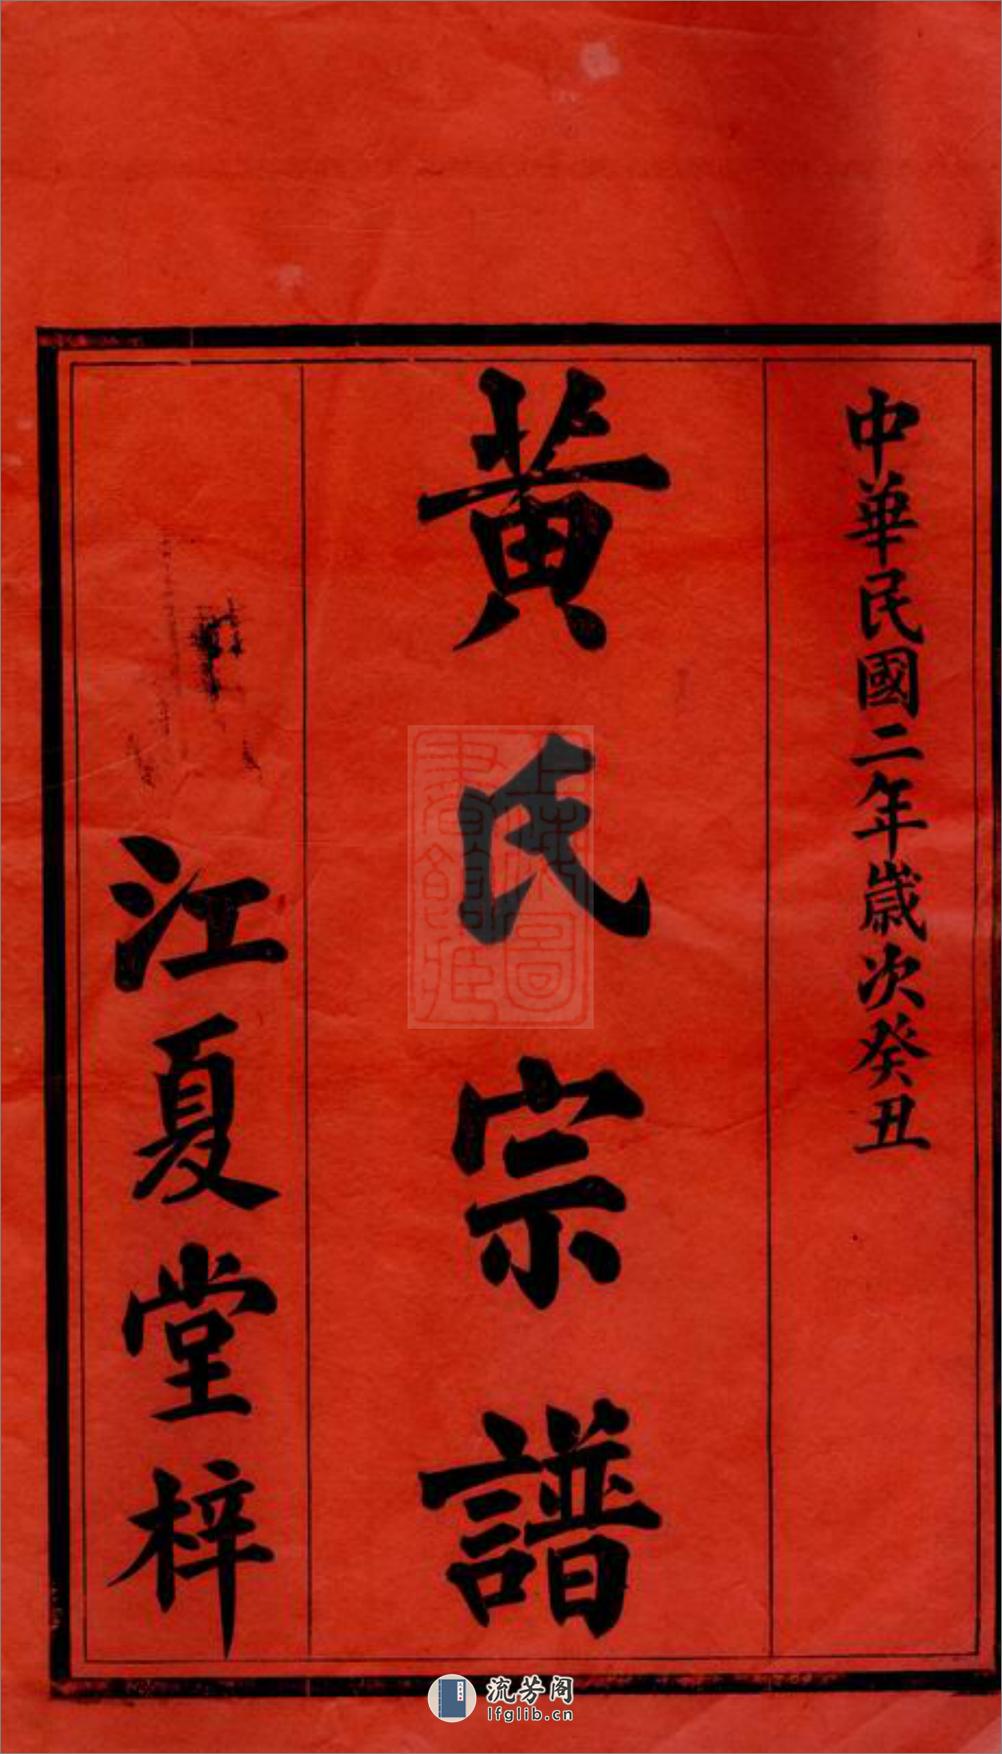 中華民國二年歲次癸丑
黃氏宗譜
江夏堂梓
上海圖書館藏
流芳阁
lfglib.cn